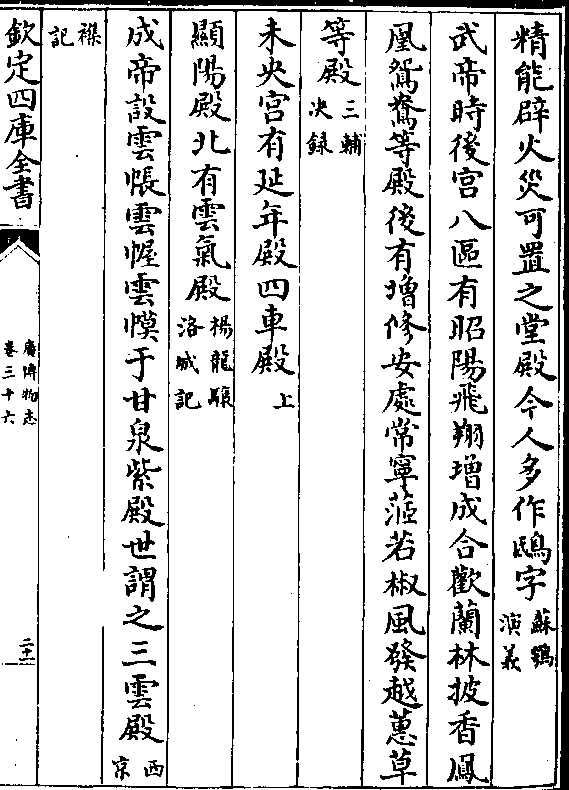 精能辟火災可置之堂殿今人多作鴟字蘇鶚演義
武帝時後宫八區有昭陽飛翔增成合歡蘭林披香鳳
凰鴛鴦等殿後有增修安處常寧茝若椒風發越蕙草
等殿三輔决録
未央宫有延年殿四車殿上
顯陽殿北有雲氣殿楊龍驤洛城記
成帝設雲帳雲幄雲幙于甘泉紫殿世謂之三雲殿西京
襍記
欽定四庫全書
廣博物志
卷三十六
二十一